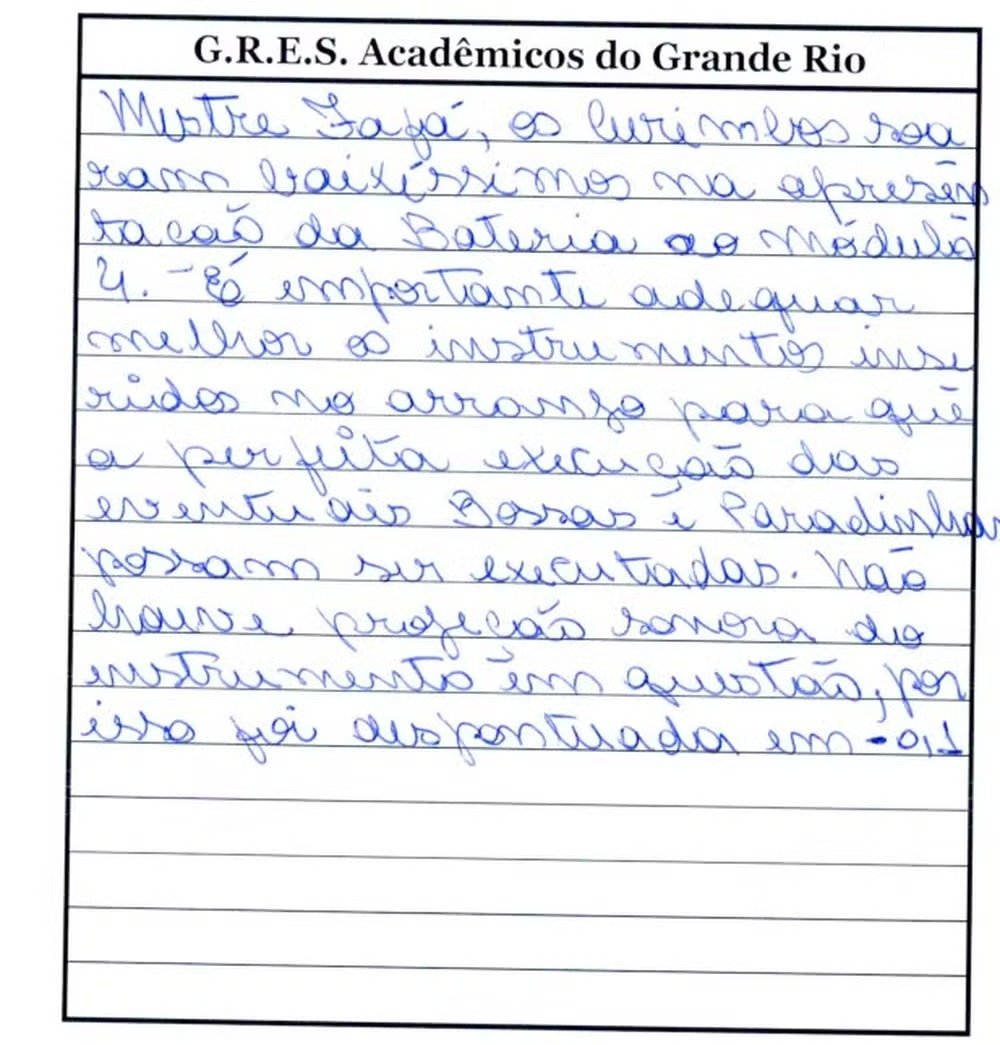 G.R.E.S. Acadêmicos do Grande Rio
Mestre Fafá, os curimbos soa
ram baixíssimos na apresen
tação da Bateria ao módulo
4. - É importante adequar
melhor os instrumentos inse
ridos no arranjo para que
a perfeita execução das
eventuais Bossas e Paradinhas
possam ser executadas. Não
houve projeção sonora do
instrumento em questão, por
isso foi despontuada em -0,1